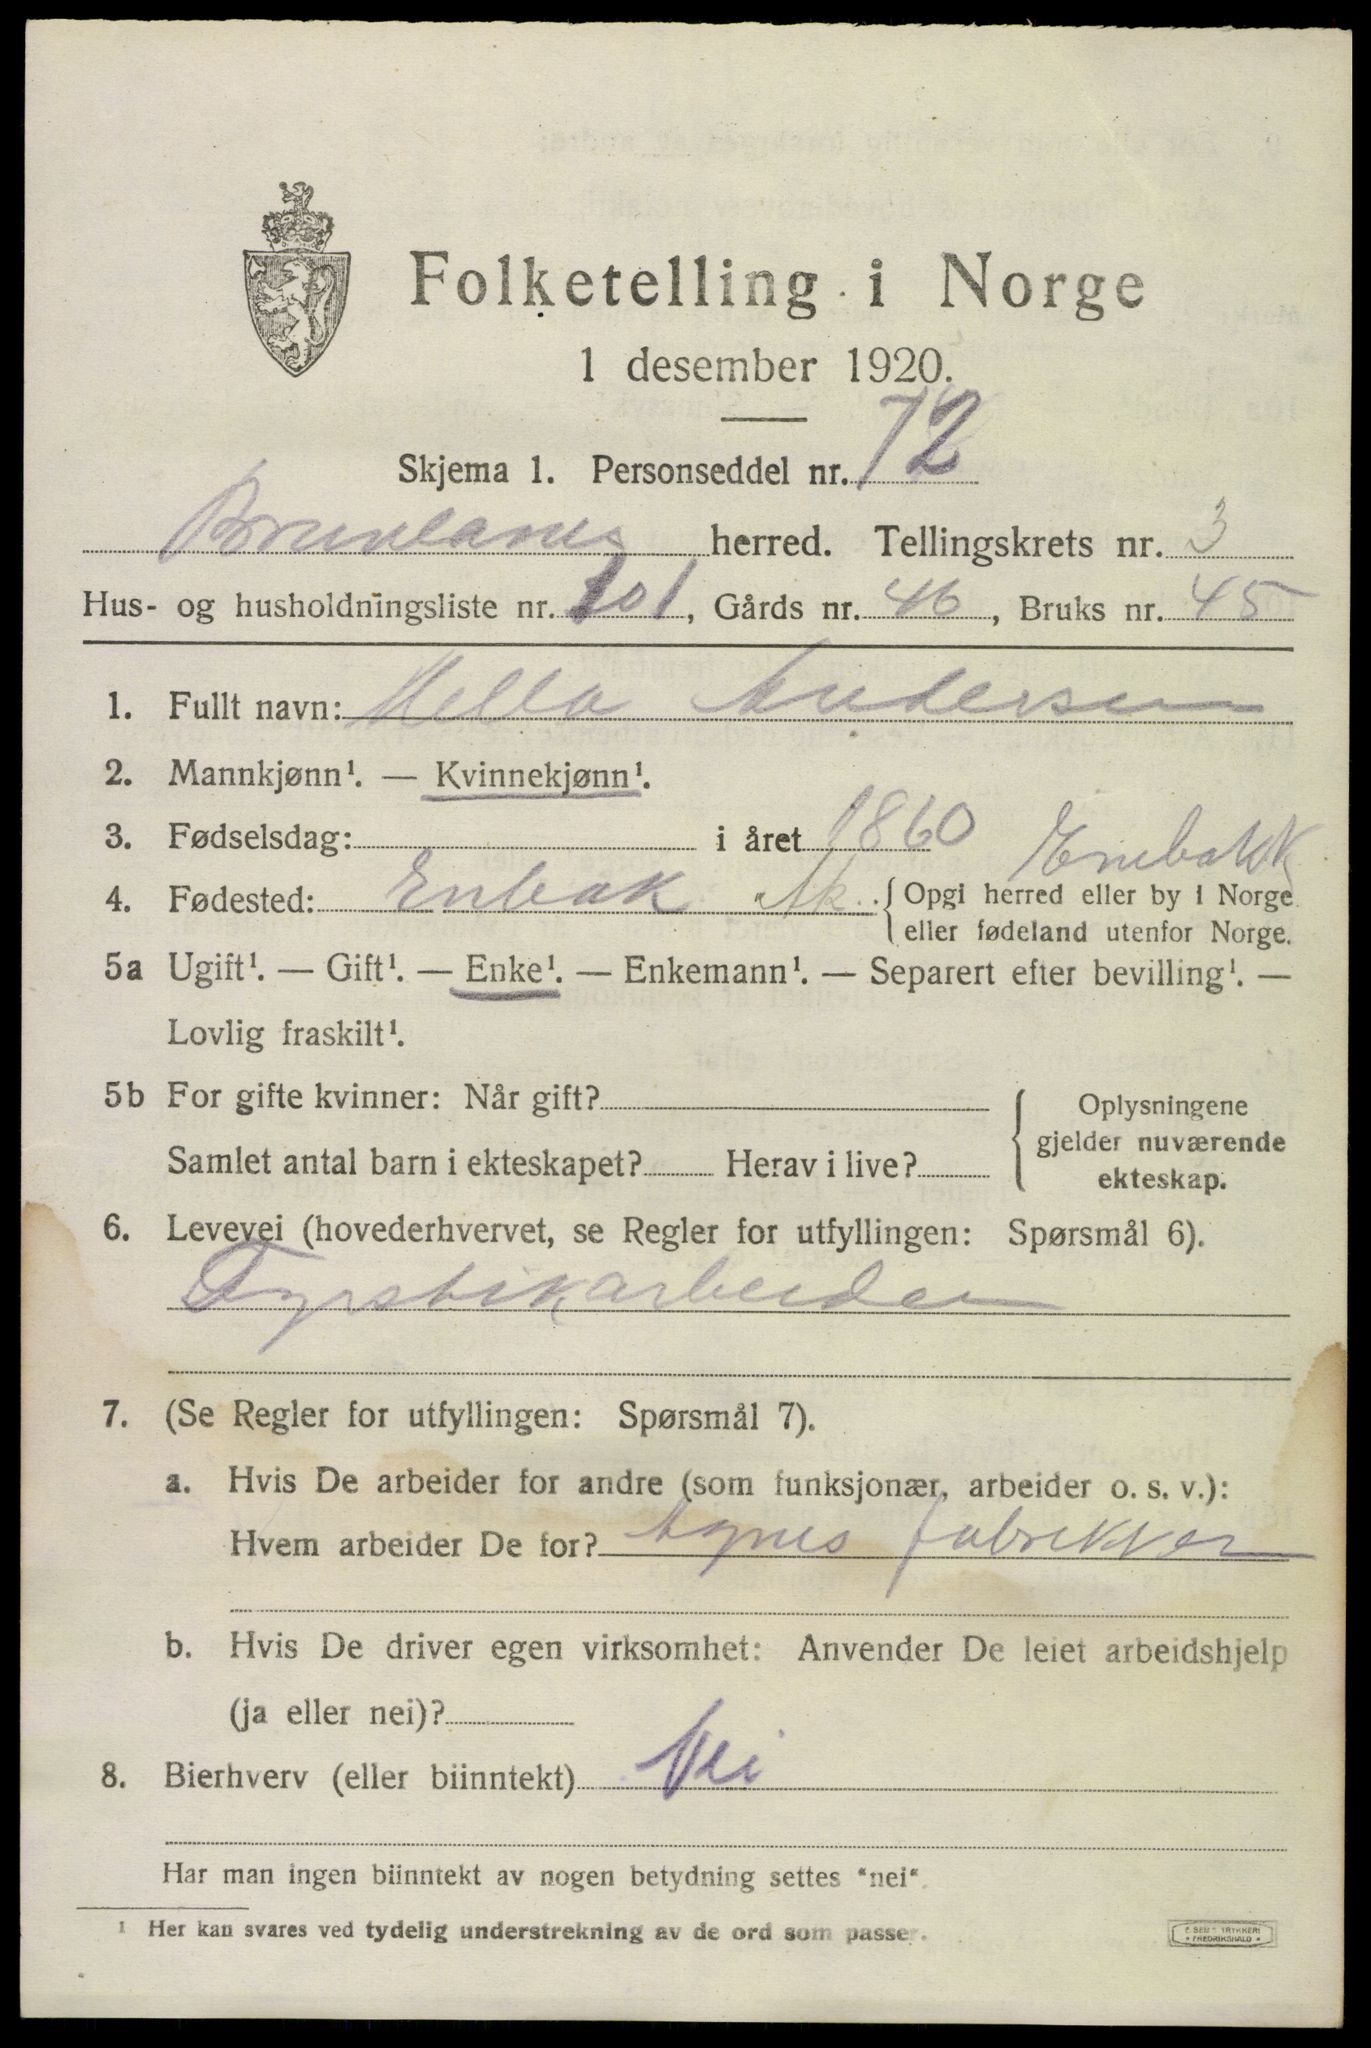 Folketelling i Norge
1 desember 1920.
Skjema 1. Personseddel nr. 72
Brunlanes herred. Tellingskrets nr. 3
Hus- og husholdningsliste nr. 101, Gårds nr. 46, Bruks nr. 45
1. Fullt navn: Andersen
2. Mannkjønn¹. — Kvinnekjønn¹.
3. Fødselsdag: i året 1860
Enebakk
4. Fødested: Enbak Ak. Opgi herred eller by i Norge
eller fødeland utenfor Norge.
5a Ugift¹. — Gift¹. — Enke¹. — Enkemann¹. — Separert efter bevilling¹. —
Lovlig fraskilt¹.
5b For gifte kvinner: Når gift? Oplysningene
gjelder nuværende
Samlet antal barn i ekteskapet? Herav i live?
ekteskap.
6. Levevei (hovederhvervet, se Regler for utfyllingen: Spørsmål 6).
Fyrstikarbeider
7. (Se Regler for utfyllingen: Spørsmål 7).
a. Hvis De arbeider for andre (som funksjonær, arbeider o. s. v.):
Hvem arbeider De for? Agnes fabrikker
b. Hvis De driver egen virksomhet: Anvender De leiet arbeidshjelp
(ja eller nei)?
8. Bierhverv (eller biinntekt) Nei
Har man ingen biinntekt av nogen betydning settes "nei".
¹ Her kan svares ved tydelig understrekning av de ord som passer.
E. SEM'S TRYKKERI
• FREDRIKSHALD •